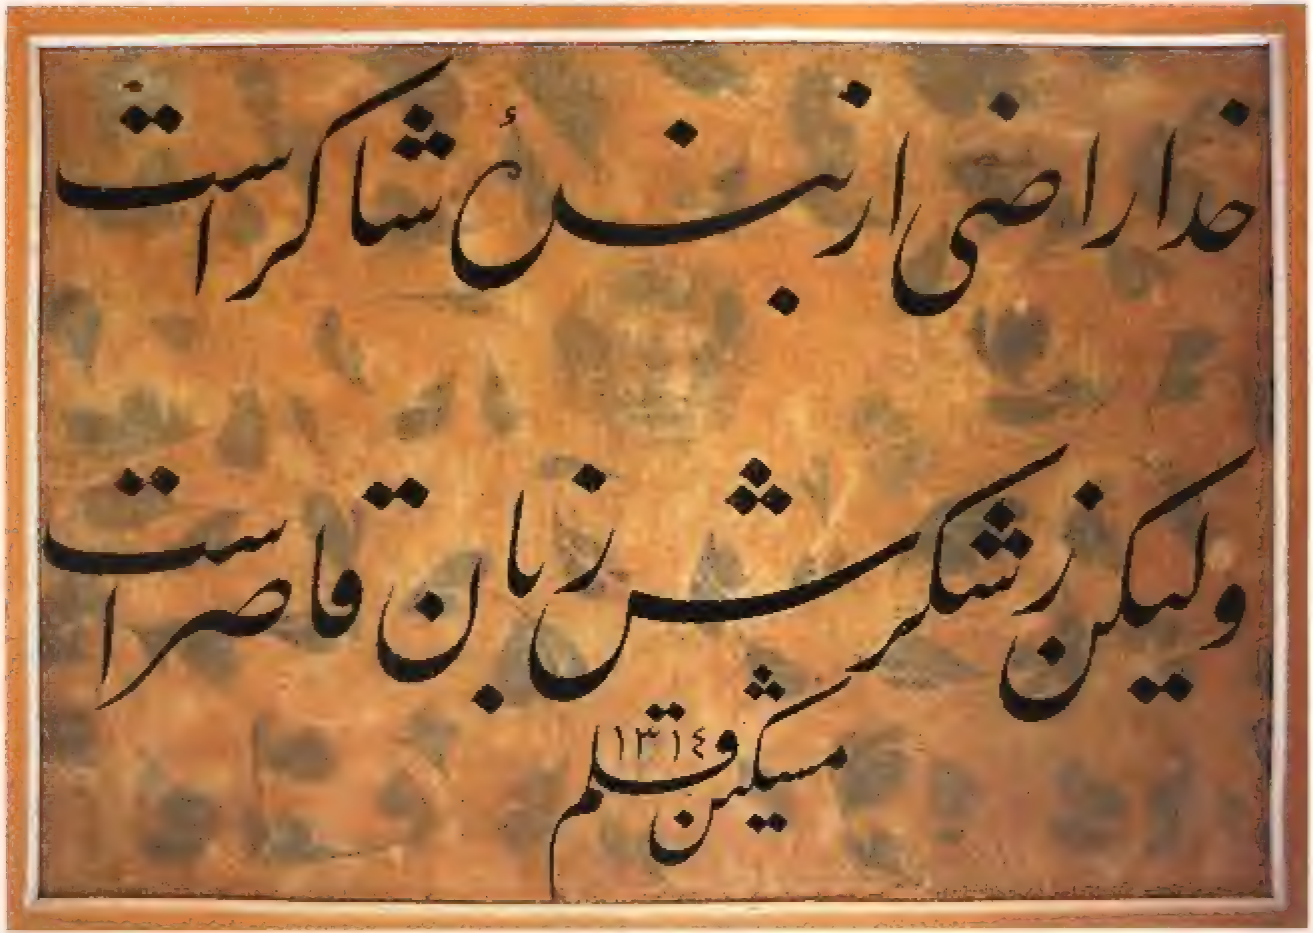 خدا راضی از بندۀ شاکر است
ولیکن ز شکرش زبان قاصر است
مشکین قلم ۱۳۱٤